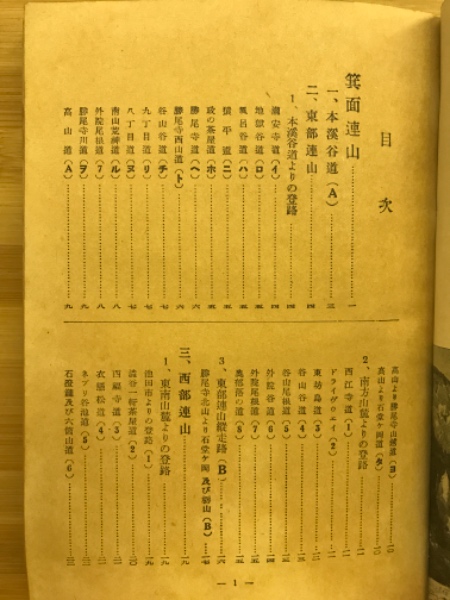 目次
箕面連山 一
一、本溪谷道(A) 三
二、東部連山 四
1、本溪谷道よりの登路 四
安寺道(イ) 四
地獄谷道(ロ) 五
風呂谷道(ハ) 五
平道(ニ) 五
政の茶屋道(ホ) 五
勝尾寺道(ヘ) 六
勝尾寺西山道(ト) 六
谷山谷道(チ) 七
九丁目道(リ) 七
八丁目道(ヌ) 七
南山荒神道(ル) 八
外院尾根道(7) 八
勝尾寺川道(ヲ) 九
高山道(A) 九
高山より勝尾寺山 道(3) 一〇
高山より石堂ケ岡道 一〇
2、南方山麓よりの登路 一一
西江寺道(1) 一一
ドライヴウエイ(2) 一一
東坊島道(3) 一二
谷山谷道(4) 一三
谷山尾根道(5)
外院谷道(6)
外院尾根道(7)
奥部落の道(8)
3、東部連山縦走路(B) 一六
勝尾寺北山より石堂ケ岡及び 山(B) 一七
三、西部連山 一九
1、東南山麓よりの登路 一九
池田市よりの登路(1) 一九
箕谷一軒茶屋道(2) 二〇
西 寺道(3) 二一
衣懸松道(4) 二一
ネブリ谷池道(5) 二二
石澄瀧及び六個山道(6) 二三
— 1 —